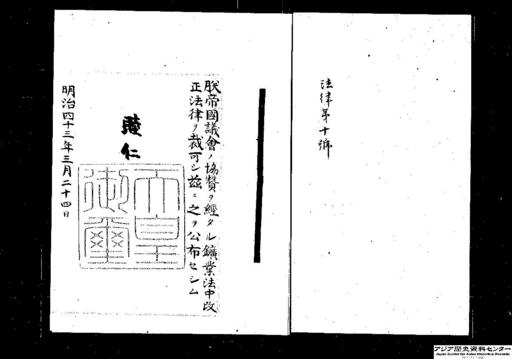 法律第十號
朕帝國議會ノ協贊ヲ經タル鑛業法中改
正法律ヲ裁可シ茲ニ之ヲ公布セシム
睦仁
天皇御璽
明治四十三年三月二十四日
アジア歴史資料センター
Japan Center for Asian Historical Records